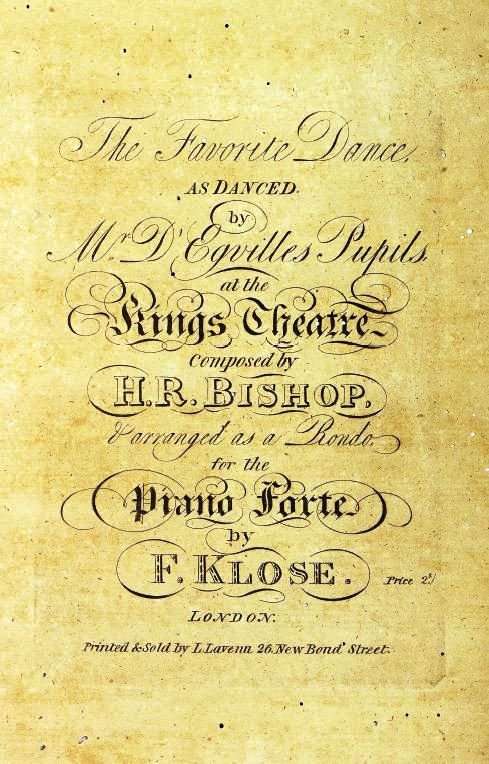 The Favorite Dance,
AS DANCED
by
Mr. D'Egvilles Pupils,
at the
Kings Theatre
Composed by
H.R. BISHOP.
& arranged as a Rondo.
for the
Piano Forte
by
F. KLOSE.
Price 2s/
LONDON.
Printed & Sold by L. Lavenu 26. New Bond Street.